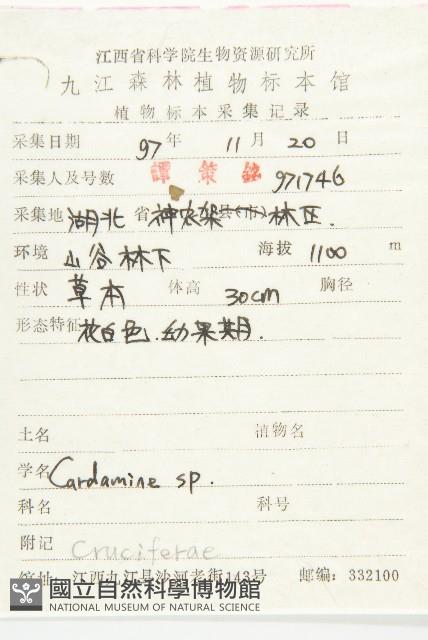 江西省科学院生物资源研究所
九江森林植物标本馆
植物标本采集记录
采集日期 97 年 11 月 20 日
采集人及号数 譚策銘 971746
采集地 湖北 省 神农架 县(市) 林区.
环境 山谷林下 海拔 1100 m
性状 草本 体高 30cm 胸径
形态特征 花白色.幼果期.
土名 植物名
学名 Cardamine sp.
科名 科号
附记 Cruciferae
馆址: 江西九江县沙河老街143号 邮编: 332100
國立自然科學博物館
NATIONAL MUSEUM OF NATURAL SCIENCE